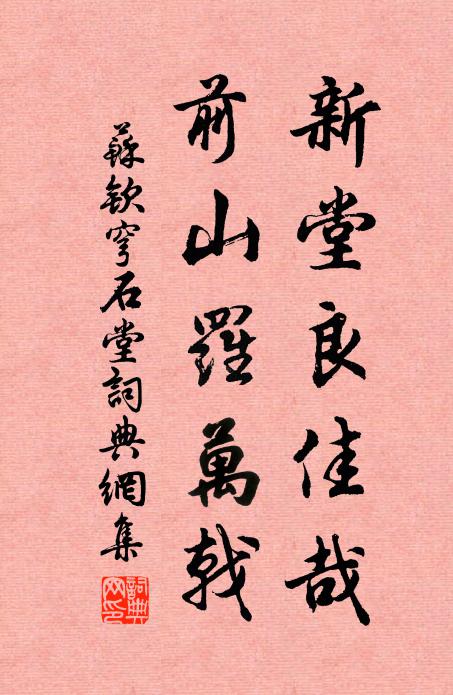 新堂良佳哉
前山羅萬戟
蘇欽穹石堂詞典網集
詞典网印